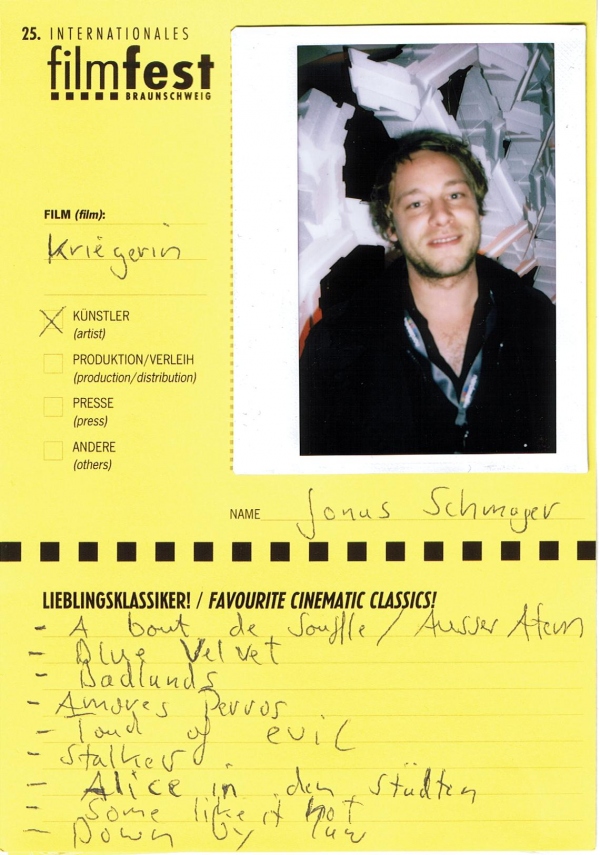 25. INTERNATIONALES
filmfest
BRAUNSCHWEIG
FILM (film):
Kriegerin
KÜNSTLER
(artist)
PRODUKTION/VERLEIH
(production/distribution)
PRESSE
(press)
ANDERE
(others)
NAME Jonas Schmager
LIEBLINGSKLASSIKER! / FAVOURITE CINEMATIC CLASSICS!
- A bout de Souffle / Ausser Atem
- Blue Velvet
- Badlands
- Amores Perros
- Touch of evil
- Stalker
- Alice in den Städten
- Some like it hot
- Down by law